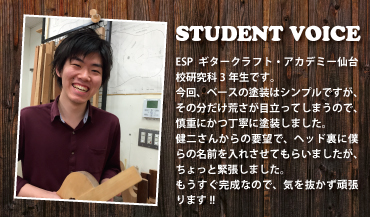 STUDENT VOICE
ESP ギタークラフト・アカデミー仙台
校研究科 3 年生です。
今回、ベースの塗装はシンプルですが、
その分だけ荒さが目立ってしまうので、
慎重にかつ丁寧に塗装しました。
健二さんからの要望で、ヘッド裏に僕
らの名前を入れさせてもらいましたが、
ちょっと緊張しました。
もうすぐ完成なので、気を抜かず頑張
ります !!